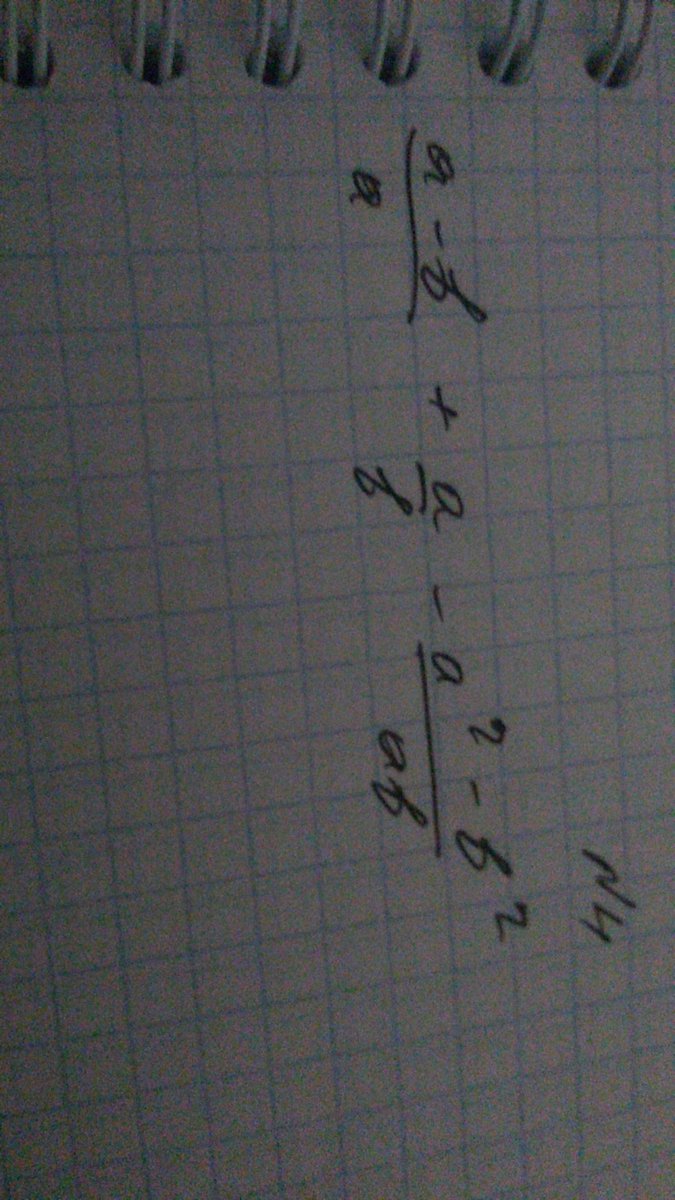 №4
(a - b)/a + a/b - (a² - b²)/(ab)